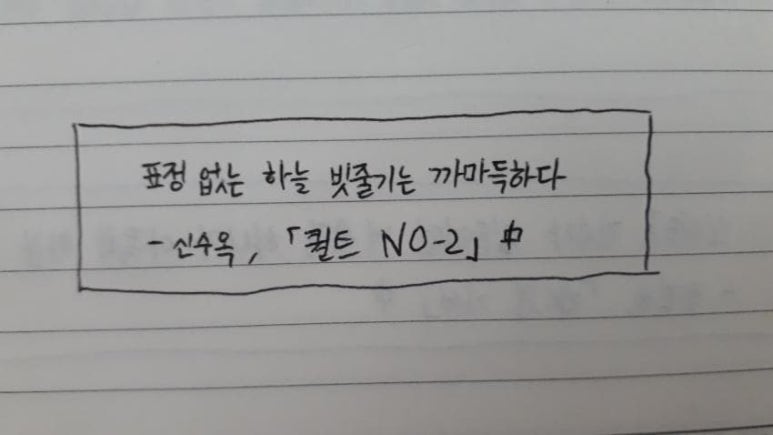 표정 없는 하늘 빗줄기는 까마득하다
- 신수옥, 「퀼트 NO-2」 中